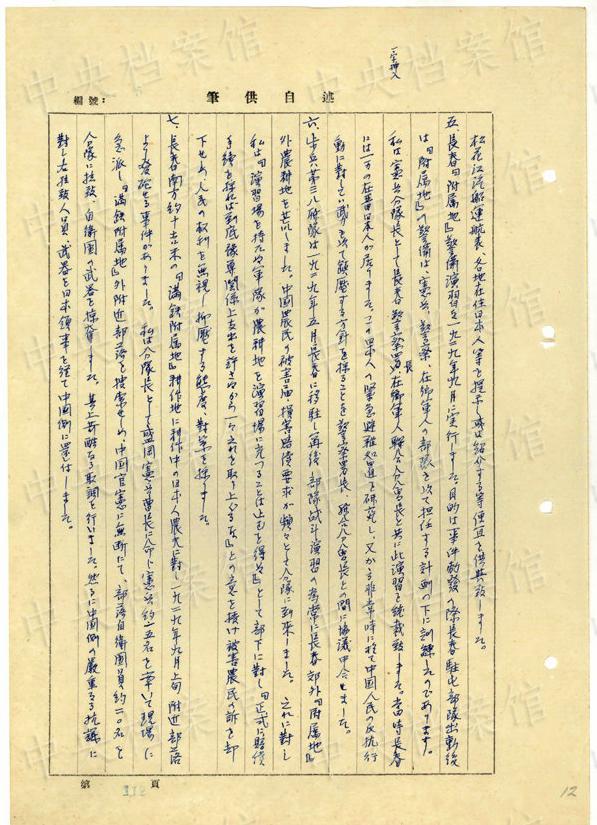 中央档案馆
述自供筆
編號：
松花江汽船運航表、各地在住日本人等を提示し或は紹介する等便宜を供与致しました。
五、長春『附属地』警備演習を一九二九年九月に実行しました。目的は『事件勃発の際長春駐屯部隊出動後
は『附属地』の警備は、憲兵、警察、在郷軍人の部隊を以て担任する計画』の下に訓練したのであります。
私は憲兵分隊長として長春警察署長、在郷軍人聯合分会長と共に此演習を統裁致しました。当時長春
には一万の在留日本人が居りました。この日本人の緊急避難知道を研究し、又かかる非常時に於て中国人民の反抗行
動に対しては武力を以て鎮圧する方針を採ることを警察署長、聯合分会長との間に協議申合せました。
六、歩兵第三八聯隊は一九二九年五月長春に移駐し再後部隊は戦斗演習の為常に長春郊外『附属地』
外農耕地を荒しました。中国農民の被害届、損害賠償要求が頻々として分隊に到来しました。これに対し
私は『演習場を持たぬ軍隊が農耕地を演習場に充つることは止むを得ず』として部下に対し『正式に賠償
手続を採れば到底後軍関係上支出を許さぬから一々之れを取り上げるな』との意を授け被害農民の訴を却
下せしめ、人民の権利を無視し抑圧する態度、対策を採りました。
七、長春南方約十吉米の『満鉄附属地』耕作地に耕作中の日本人農夫に対し一九二九年九月上旬附近部落
より発砲せる事件がありました。私は分隊長として盛岡憲兵曹長に命じ憲兵約十五名を率いて現場に
急派し『満鉄附属地』外附近部落を捜索せしめ、中国官憲に無断にて、部落自衛団員約二〇名を
分隊に拉致、自衛団の武器を押収しました。其上苛酷なる取調を行いました。然るに中国側の厳重なる抗議に
対し右拉致人員、武器を日本領事を経て中国側に還付しました。
第　頁
12